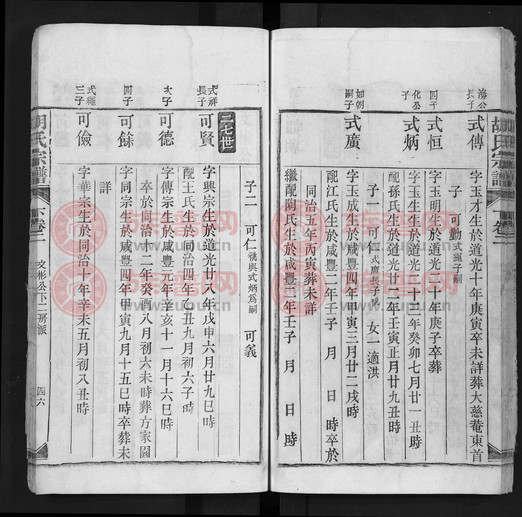 胡氏宗譜
卷二
海公長子
式傳
字玉才生於道光十年庚寅卒未詳葬大慈菴東首
子一 可勤式繩子嗣
四子
式恒
字玉明生於道光二十年庚子卒葬
化公子
式炳
字玉生生於道光二十三年癸卯七月六日丑時
配孫氏生於道光廿二年壬寅正月廿九丑時
子一 可仁式廣長子嗣 女一適洪
如朝嗣子
式廣
字玉成生於咸豐四年甲寅三月廿二戌時
配江氏生於咸豐二年壬子 月 日 時卒於
同治五年丙寅葬未詳
繼配陶氏生於咸豐二年壬子 月 日 時
子二 可仁繼與式炳爲嗣 可義
二七世
式祥長子
可賢
字興宗生於道光廿八年戊申六月廿九巳時
配王氏生於同治四年乙丑九月初六子時
次子
可德
字傳宗生於咸豐元年辛亥十一月十六巳時
卒於同治十二年癸酉八月初六未時葬方家園
四子
可餘
字同宗生於咸豐四年甲寅九月十五巳時卒葬未
詳
式繩三子
可儉
字華宗生於同治十年辛未五月初八丑時
胡氏宗譜
下卷二
文彬公下二房派
四六